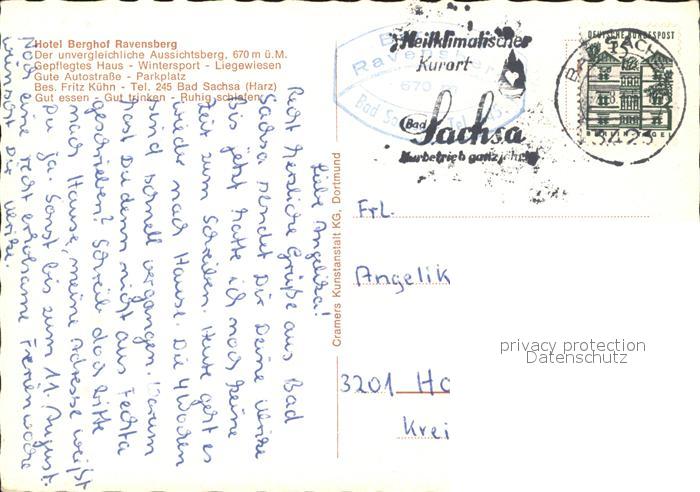 Hotel Berghof Ravensberg
Der unvergleichliche Aussichtsberg, 670 m ü.M.
Gepflegtes Haus - Wintersport - Liegewiesen
Gute Autostraße - Parkplatz
Bes. Fritz Kühn - Tel. 245 Bad Sachsa (Harz)
Gut essen - Gut trinken - Ruhig schlafen
Liebe Angelika!
Recht herzliche Grüße aus Bad
Sachsa sendet Dir Deine Ulrike
Bis jetzt hatte ich noch keine
Zeit zum Schreiben. Heute geht es
wieder nach Hause. Die 4 Wochen
sind schnell vergangen. Warum
hast Du denn nicht aus
geschrieben? Schreib doch bitte
nach Hause, meine Adresse weißt
Du ja. Sonst bis zum 11. August.
Noch eine recht erholsame Ferienwoche
wünscht Dir Ulrike.
Cramers Kunstanstalt KG, Dortmund
Ravensberg
670 m
Bad Sachsa Tel. 245
Heilklimatischer
Kurort
Bad
Sachsa
Kurbetrieb ganzjährig
DEUTSCHE BUNDESPOST
BAD SACHSA
3423
Frl.
Angelik
3201 Ho
Krei
privacy protection
Datenschutz